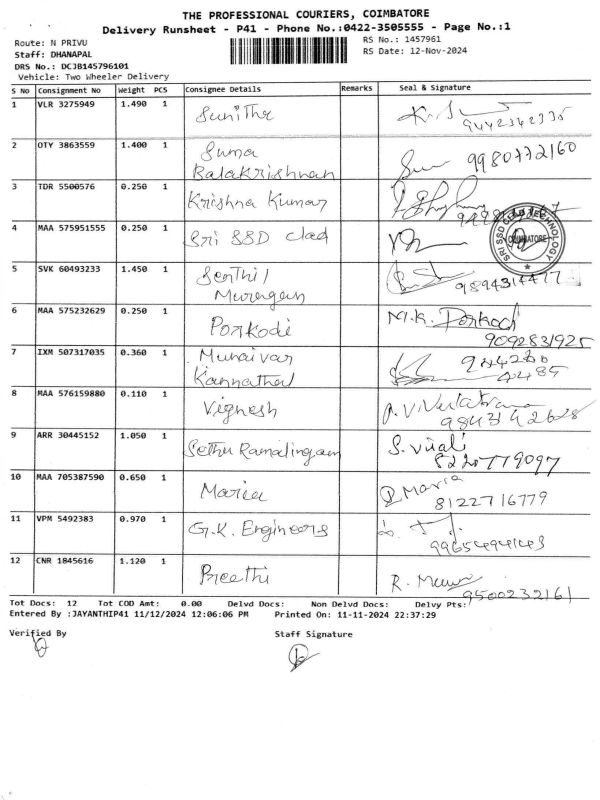 THE PROFESSIONAL COURIERS, COIMBATORE
Delivery Runsheet - P41 - Phone No.:0422-3505555 - Page No.:1
Route: N PRIVU
RS No.: 1457961
Staff: DHANAPAL
RS Date: 12-Nov-2024
DRS No.: DCJB145796101
Vehicle: Two Wheeler Delivery
S No Consignment No Weight PCS Consignee Details Remarks Seal & Signature
1 VLR 3275949 1.490 1 Sunitha
9442342335
2 OTY 3863559 1.400 1 Suma
Balakrishnan
9980772160
3 TDR 5500576 0.250 1 Krishna Kumar
4 MAA 575951555 0.250 1 Sri SSD clad
SRI SSD CLAD TECHNOLOGY
COIMBATORE
5 SVK 60493233 1.450 1 Senthil
Murugan
9894314477
6 MAA 575232629 0.250 1 Porkodi
M.K. Porkodi
9092831925
7 IXM 507317035 0.360 1 Munaivar
Kannathal
8 MAA 576159880 0.110 1 Vignesh
9843142628
9 ARR 30445152 1.050 1 Sethu Ramalingam
8220779097
10 MAA 705387590 0.650 1 Maria
Maria
8122716779
11 VPM 5492383 0.970 1 G.K. Engineers
12 CNR 1845616 1.120 1 Preethi
9500232161
Tot Docs: 12 Tot COD Amt: 0.00 Delvd Docs: Non Delvd Docs: Delvy Pts:
Entered By :JAYANTHIP41 11/12/2024 12:06:06 PM Printed On: 11-11-2024 22:37:29
Verified By
Staff Signature